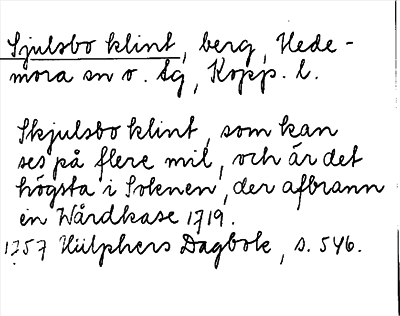 Sjulsbo klint, berg, Hede-
mora sn o. tg, Kopp. l.
Skjulsbo klint, som kan
ses på flere mil, och är det
högsta i Soknen, der afbrann
en Wårdkase 1719.
1757 Hülphers Dagbok, s. 546.